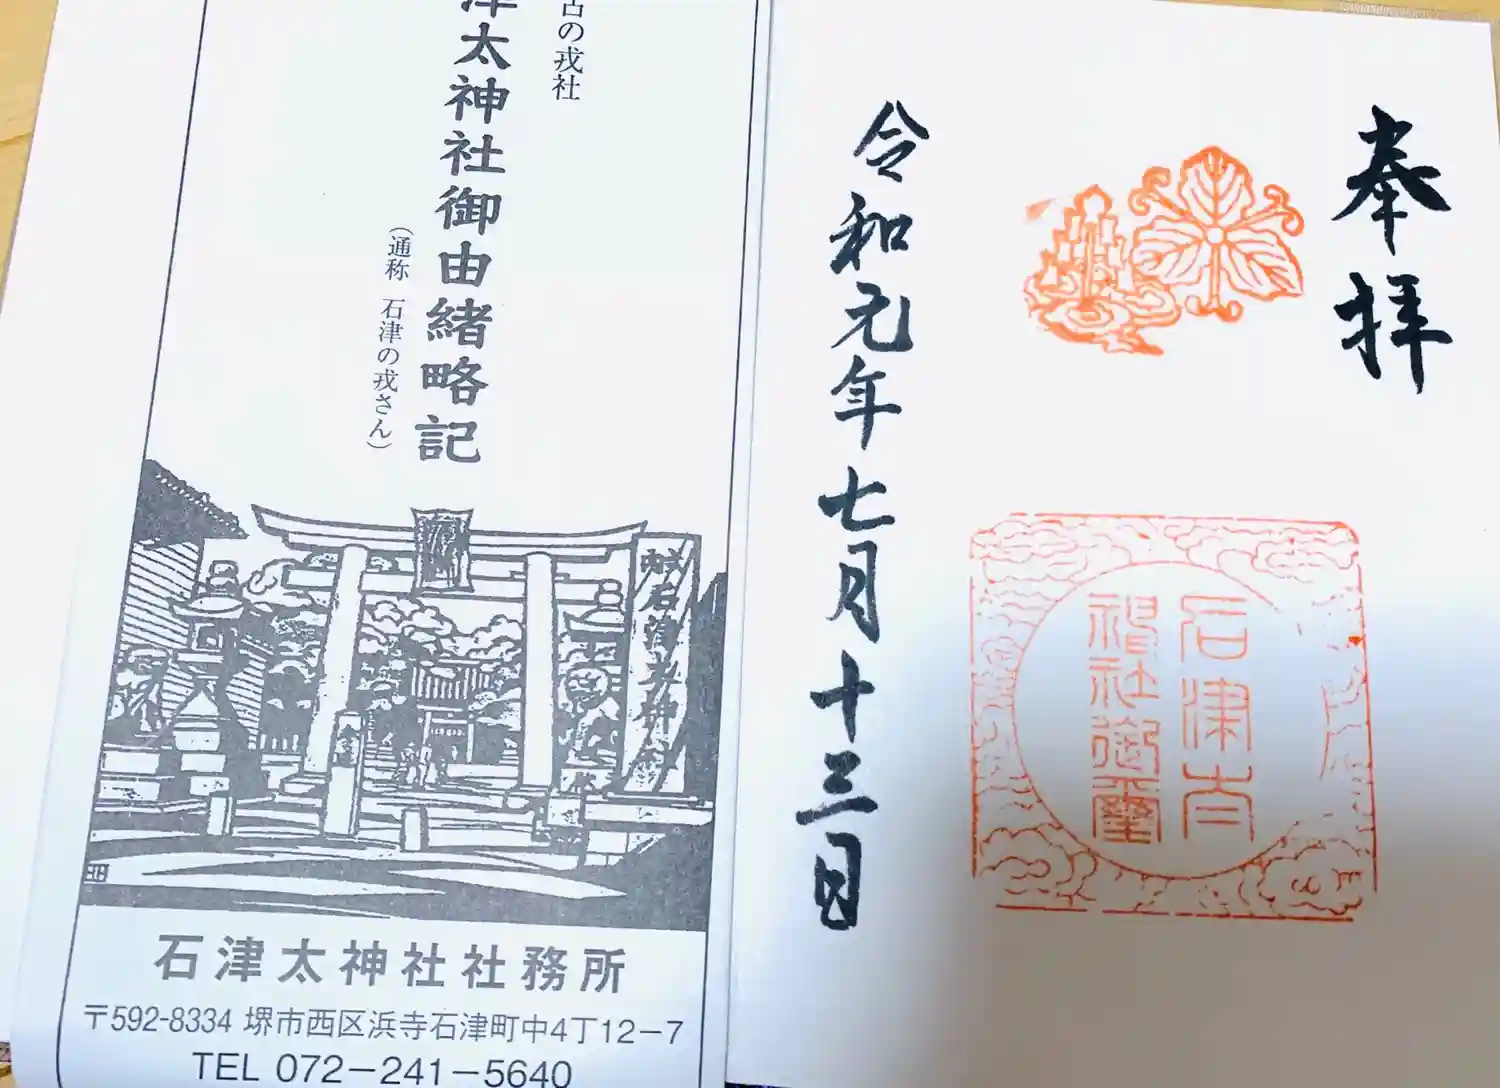 奉拝
石津太
神社御璽
令和元年七月十三日
古の戎社
津太神社御由緒略記
(通称 石津の戎さん)
石津太神社
石津太神社社務所
〒592-8334 堺市西区浜寺石津町中4丁12-7
TEL 072-241-5640